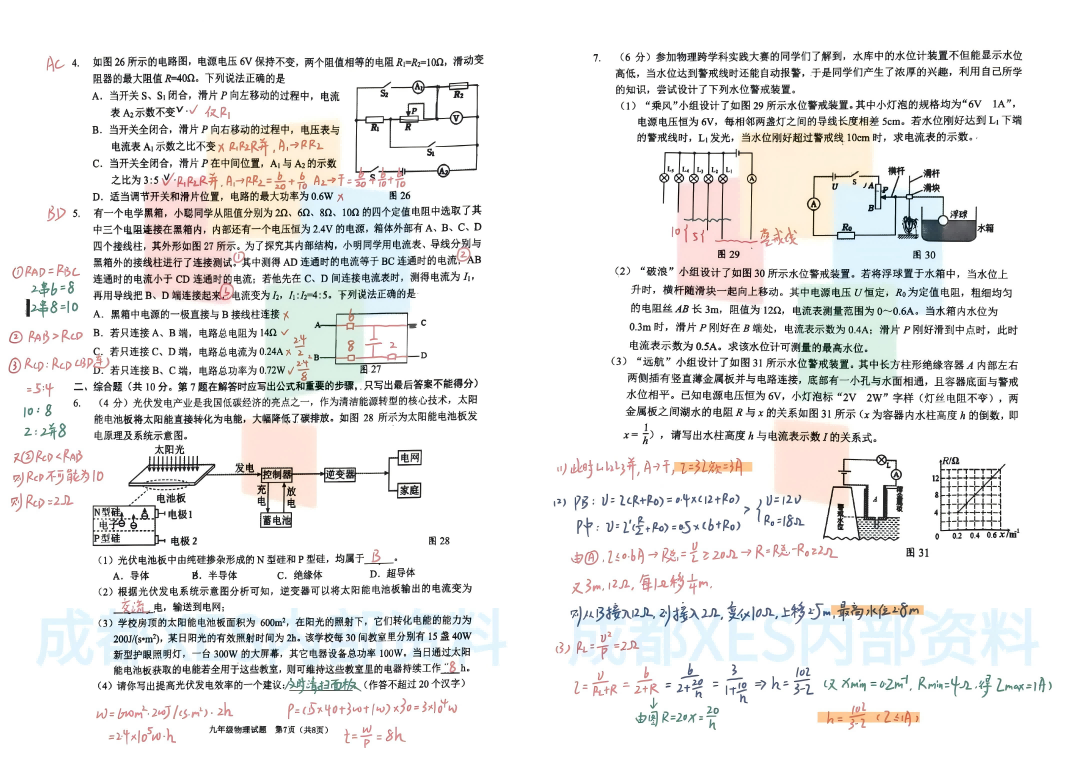 AC
4. 如图26所示的电路图，电源电压6V保持不变，两个阻值相等的电阻R₁=R₂=10Ω，滑动变
阻器的最大阻值R=40Ω。下列说法正确的是
A．当开关S、S₁闭合，滑片P向左移动的过程中，电流
表A₂示数不变 √ 仅R₁
B．当开关全闭合，滑片P向右移动的过程中，电压表与
电流表A₁示数之比不变 × R₁R₂R并，A₁→RR₂
C．当开关全闭合，滑片P在中间位置，A₁与A₂的示数
之比为3:5 √ R₁R₂R并，A₁→RR₂=6/20+6/10 A₂→干=6/20+6/10+6/10
D．适当调节开关和滑片位置，电路的最大功率为0.6W ×
图26
S₂ A₁ R₂
R₁ P R V
S₁
S A₂
BD
5. 有一个电学黑箱，小聪同学从阻值分别为2Ω、6Ω、8Ω、10Ω的四个定值电阻中选取了其
中三个电阻连接在黑箱内，内部还有一个电压恒为2.4V的电源，箱体外部有A、B、C、D
四个接线柱，其外形如图27所示。为了探究其内部结构，小明同学用电流表、导线分别与
黑箱外的接线柱进行了连接测试，①其中测得AD连通时的电流等于BC连通时的电流，②AB
连通时的电流小于CD连通时的电流；若他先在C、D间连接电流表时，测得电流为I₁，
再用导线把B、D端连接起来，③电流变为I₂，I₁:I₂=4:5。下列说法正确的是
A．黑箱中电源的一极直接与B接线柱连接 ×
B．若只连接A、B端，电路总电阻为14Ω √
C．若只连接C、D端，电路总电流为0.24A × 24/2
D．若只连接B、C端，电路总功率为0.72W √ 24/8
A B C D
6 8 2
图27
①RAD=RBC
2串6=8
2串8=10
② RAB>RCD
③ RCD:RCD(BD连)
=5:4
10:8
2:2并8
又②RCD<RAB
则RCD不可能为10
则RCD=2Ω
二、综合题（共10分。第7题在解答时应写出公式和重要的步骤，只写出最后答案不能得分）
6. （4分）光伏发电产业是我国低碳经济的亮点之一，作为清洁能源转型的核心技术，太阳
能电池板将太阳能直接转化为电能，大幅降低了碳排放。如图28所示为太阳能电池板发
电原理及系统示意图。
太阳光
发电 控制器 逆变器 电网
家庭
充电 放电
蓄电池
电池板
N型硅 电极1
电子
P型硅 电极2
图28
（1）光伏电池板中由纯硅掺杂形成的N型硅和P型硅，均属于 B 。
A．导体 B．半导体 C．绝缘体 D．超导体
（2）根据光伏发电系统示意图分析可知，逆变器可以将太阳能电池板输出的电流变为
交流 电，输送到电网；
（3）学校房顶的太阳能电池板面积为600m²，在阳光的照射下，它们转化电能的能力为
200J/(s•m²)，某日阳光的有效照射时间为2h。该学校每30间教室里分别有15盏40W
新型护眼照明灯，一台300W的大屏幕，其它电器设备总功率100W。当日通过太阳
能电池板获取的电能若全用于这些教室，则可维持这些教室里的电器持续工作 8 h。
（4）请你写出提高光伏发电效率的一个建议： 及时清扫面板 （作答不超过20个汉字）
W=600m²·200J/(s·m²)·2h
=2.4×10⁵W·h
P=(15×40+300+100)×30=3×10⁴W
t=W/P=8h
九年级物理试题 第7页（共8页）
7. （6分）参加物理跨学科实践大赛的同学们了解到，水库中的水位计装置不但能显示水位
高低，当水位达到警戒线时还能自动报警，于是同学们产生了浓厚的兴趣，利用自己所学
的知识，尝试设计了下列水位警戒装置。
（1）“乘风”小组设计了如图29所示水位警戒装置。其中小灯泡的规格均为“6V 1A”，
电源电压恒为6V，每相邻两盏灯之间的导线长度相差5cm。若水位刚好达到L₁下端
的警戒线时，L₁发光，当水位刚好超过警戒线10cm时，求电流表的示数。
L₅ L₄ L₃ L₂ L₁ A
10 5 警戒线
图29
U S A P B 横杆 滑杆 滑块
A R₀ 浮球 水箱
图30
（2）“破浪”小组设计了如图30所示水位警戒装置。若将浮球置于水箱中，当水位上
升时，横杆随滑块一起向上移动。其中电源电压U恒定，R₀为定值电阻，粗细均匀
的电阻丝AB长3m，阻值为12Ω，电流表测量范围为0～0.6A。当水箱内水位为
0.3m时，滑片P刚好在B端处，电流表示数为0.4A；滑片P刚好滑到中点时，此时
电流表示数为0.5A。求该水位计可测量的最高水位。
（3）“远航”小组设计了如图31所示水位警戒装置。其中长方柱形绝缘容器A内部左右
两侧插有竖直薄金属板并与电路连接，底部有一小孔与水面相通，且容器底面与警戒
水位相平。已知电源电压恒为6V，小灯泡标“2V 2W”字样（灯丝电阻不变），两
金属板之间湖水的电阻R与x的关系如图31所示（x为容器内水柱高度h的倒数，即
x=1/h），请写出水柱高度h与电流表示数I的关系式。
L A
警戒水位 A
R/Ω
12
8
4
0 0.2 0.4 0.6 x/m⁻¹
图31
(1)此时L₁L₂L₃并，A→干，I=3I额=3A
(2) P B：U=I(R+R₀)=0.4×(12+R₀)
P中：U=I'(R/2+R₀)=0.5×(6+R₀)
U=12V
R₀=18Ω
由Ⓐ，I≤0.6A→R总=U/I≥20Ω→R=R总-R₀≥2Ω
又3m，12Ω，每1Ω移1/4m.
则从B接入12Ω，到接入2Ω，变化10Ω，上移2.5m，最高水位2.8m
(3) RL=U²/P=2Ω
I=U/(RL+R)=6/(2+R)=6/(2+20/h)=3/(1+10/h) ⇒ h=10I/(3-I) (又xmin=0.2m⁻¹，Rmin=4Ω，得Imax=1A)
由图R=20x=20/h
h=10I/(3-I) (I≤1A)